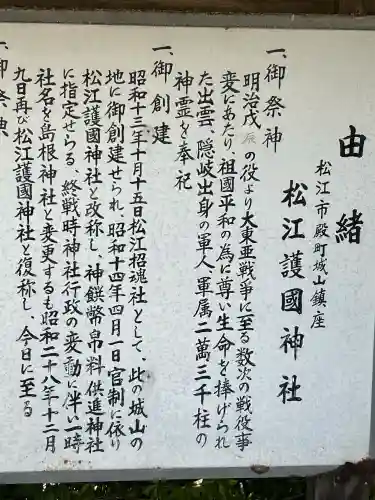 由緒
松江市殿町城山鎮座
松江護國神社
一、御祭神
明治戊辰の役より大東亜戦争に至る数次の戦役事
変にあたり、祖國平和の為に尊い生命を捧げられ
た出雲、隠岐出身の軍人、軍属二萬三千柱の
神霊を奉祀
一、御創建
昭和十三年十月十五日松江招魂社として、此の城山の
地に御創建せられ、昭和十四年四月一日官制に依り
松江護國神社と改称し、神饌幣帛料供進神社
に指定せらる、終戦時神社行政の変動に伴い一時
社名を島根神社と変更するも昭和二十八年十二月
九日再び松江護國神社と復称し、今日に至る
一、御祭典